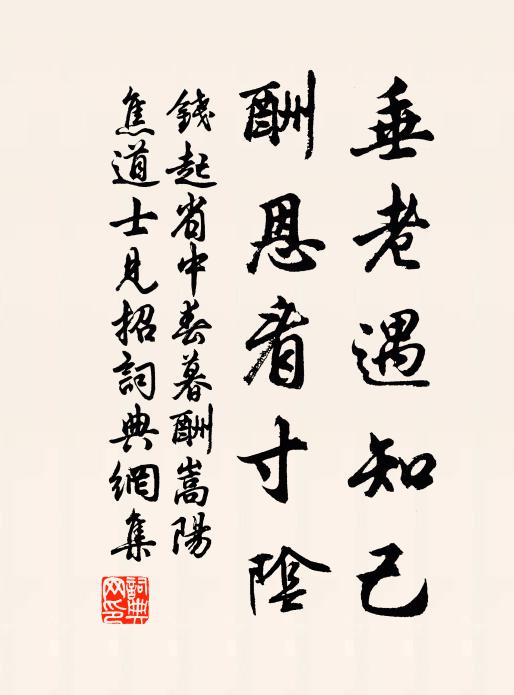 垂老遇知己
酬恩看寸陰
錢起省中春暮酬嵩陽
焦道士見招詞典網集